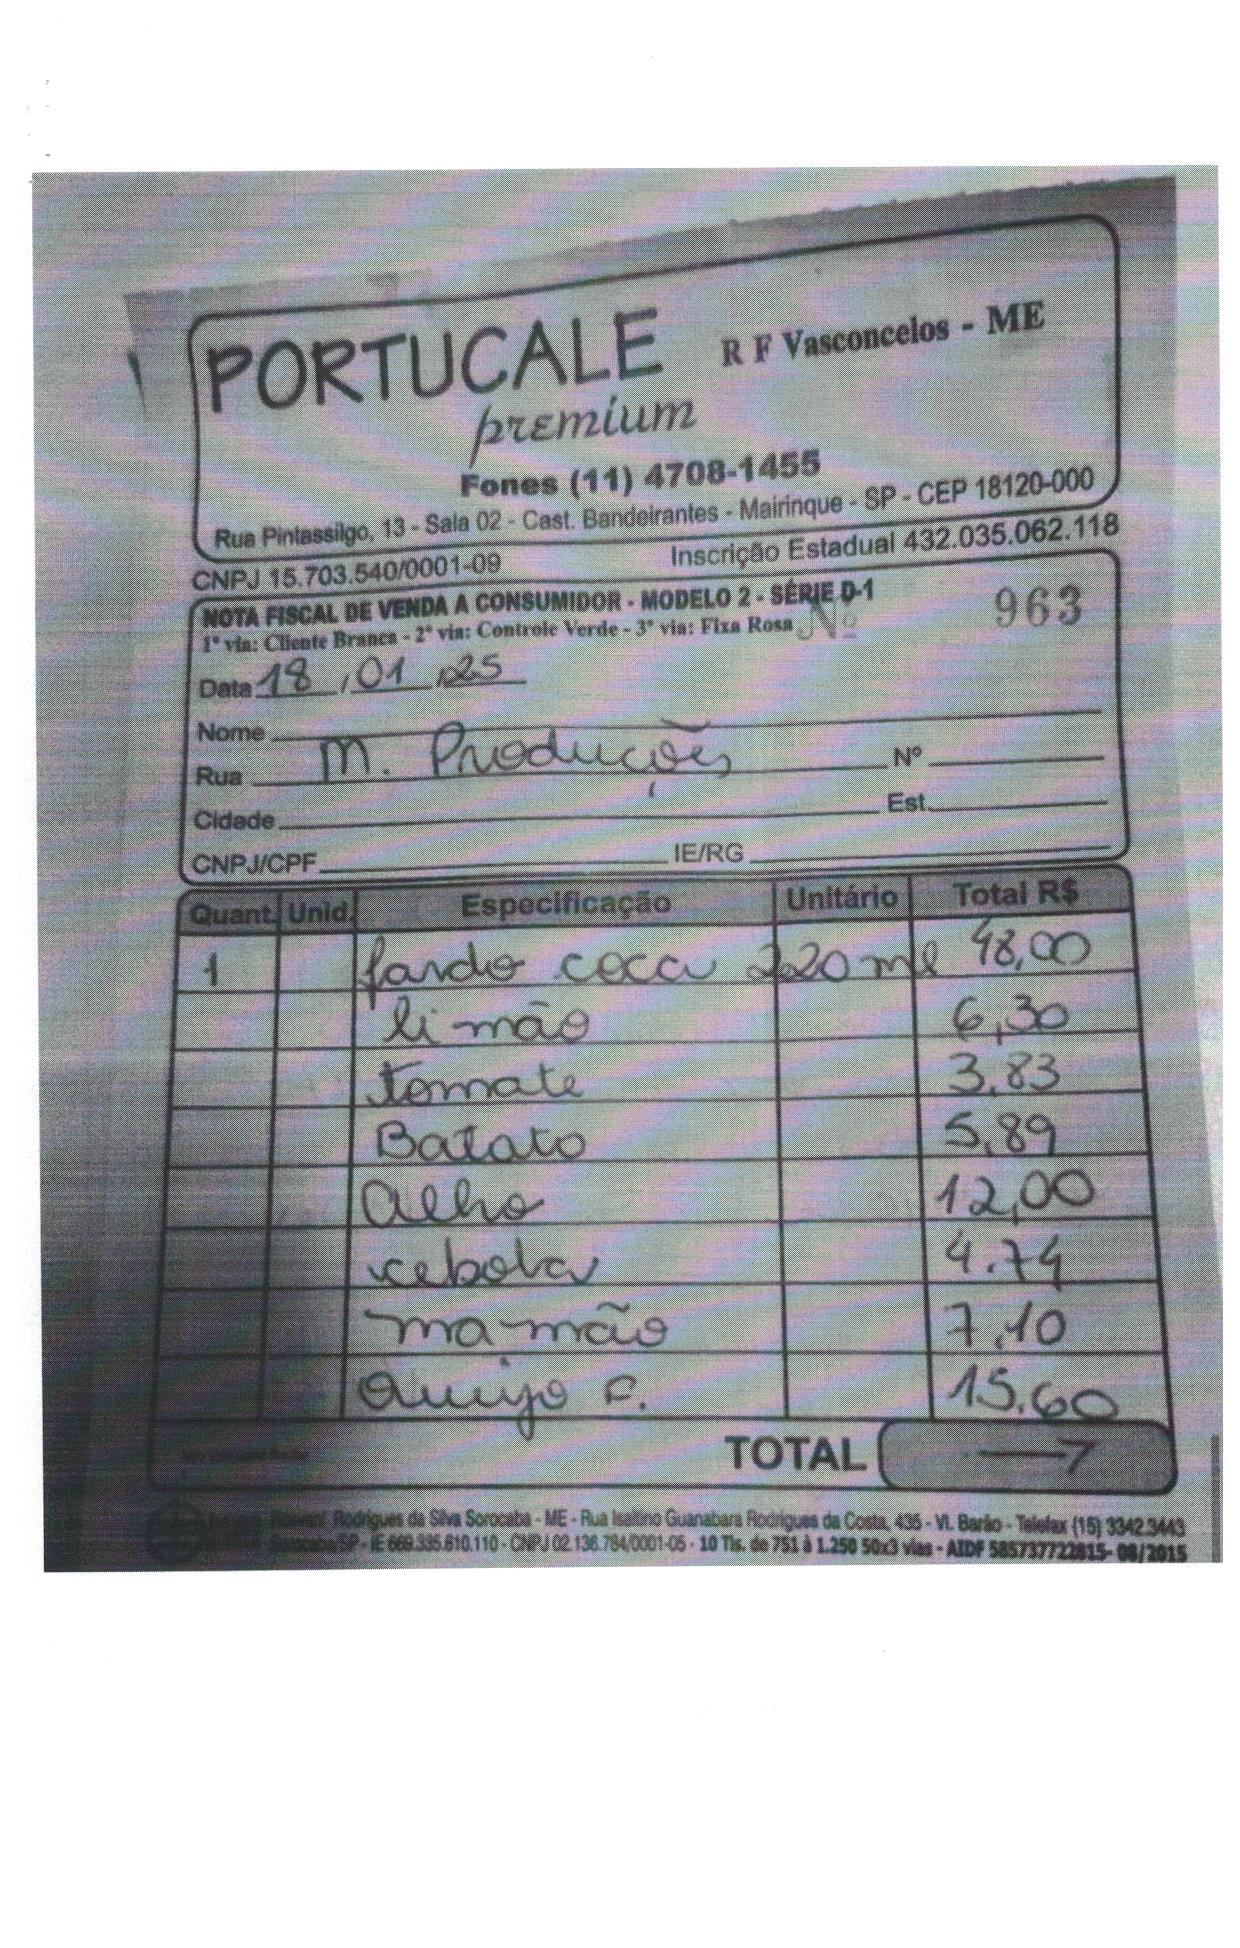 PORTUCALE R F Vasconcelos - ME
premium
Fones (11) 4708-1455
Rua Pintassilgo, 13 - Sala 02 - Cast. Bandeirantes - Mairinque - SP - CEP 18120-000
CNPJ 15.703.540/0001-09 Inscrição Estadual 432.035.062.118
NOTA FISCAL DE VENDA A CONSUMIDOR - MODELO 2 - SÉRIE D-1
1ª via: Cliente Branca - 2ª via: Controle Verde - 3ª via: Fixa Rosa Nº 963
Data 18/01/25
Nome
Rua M. Produções Nº
Cidade Est.
CNPJ/CPF IE/RG
Quant. Unid. Especificação Unitário Total R$
1 fardo coca 220 ml 48,00
limão 6,30
tomate 3,83
Batata 5,89
Alho 12,00
cebola 4.74
mamão 7,10
Queijo P. 15,60
TOTAL
Rodrigues da Silva Sorocaba - ME - Rua Isaltino Guanabara Rodrigues da Costa, 435 - Vl. Barão - Telefax (15) 3342.3443
Sorocaba/SP - IE 669.335.610.110 - CNPJ 02.136.784/0001-05 - 10 Tls. de 751 à 1.250 50x3 vias - AIDF 585737722815- 08/2015